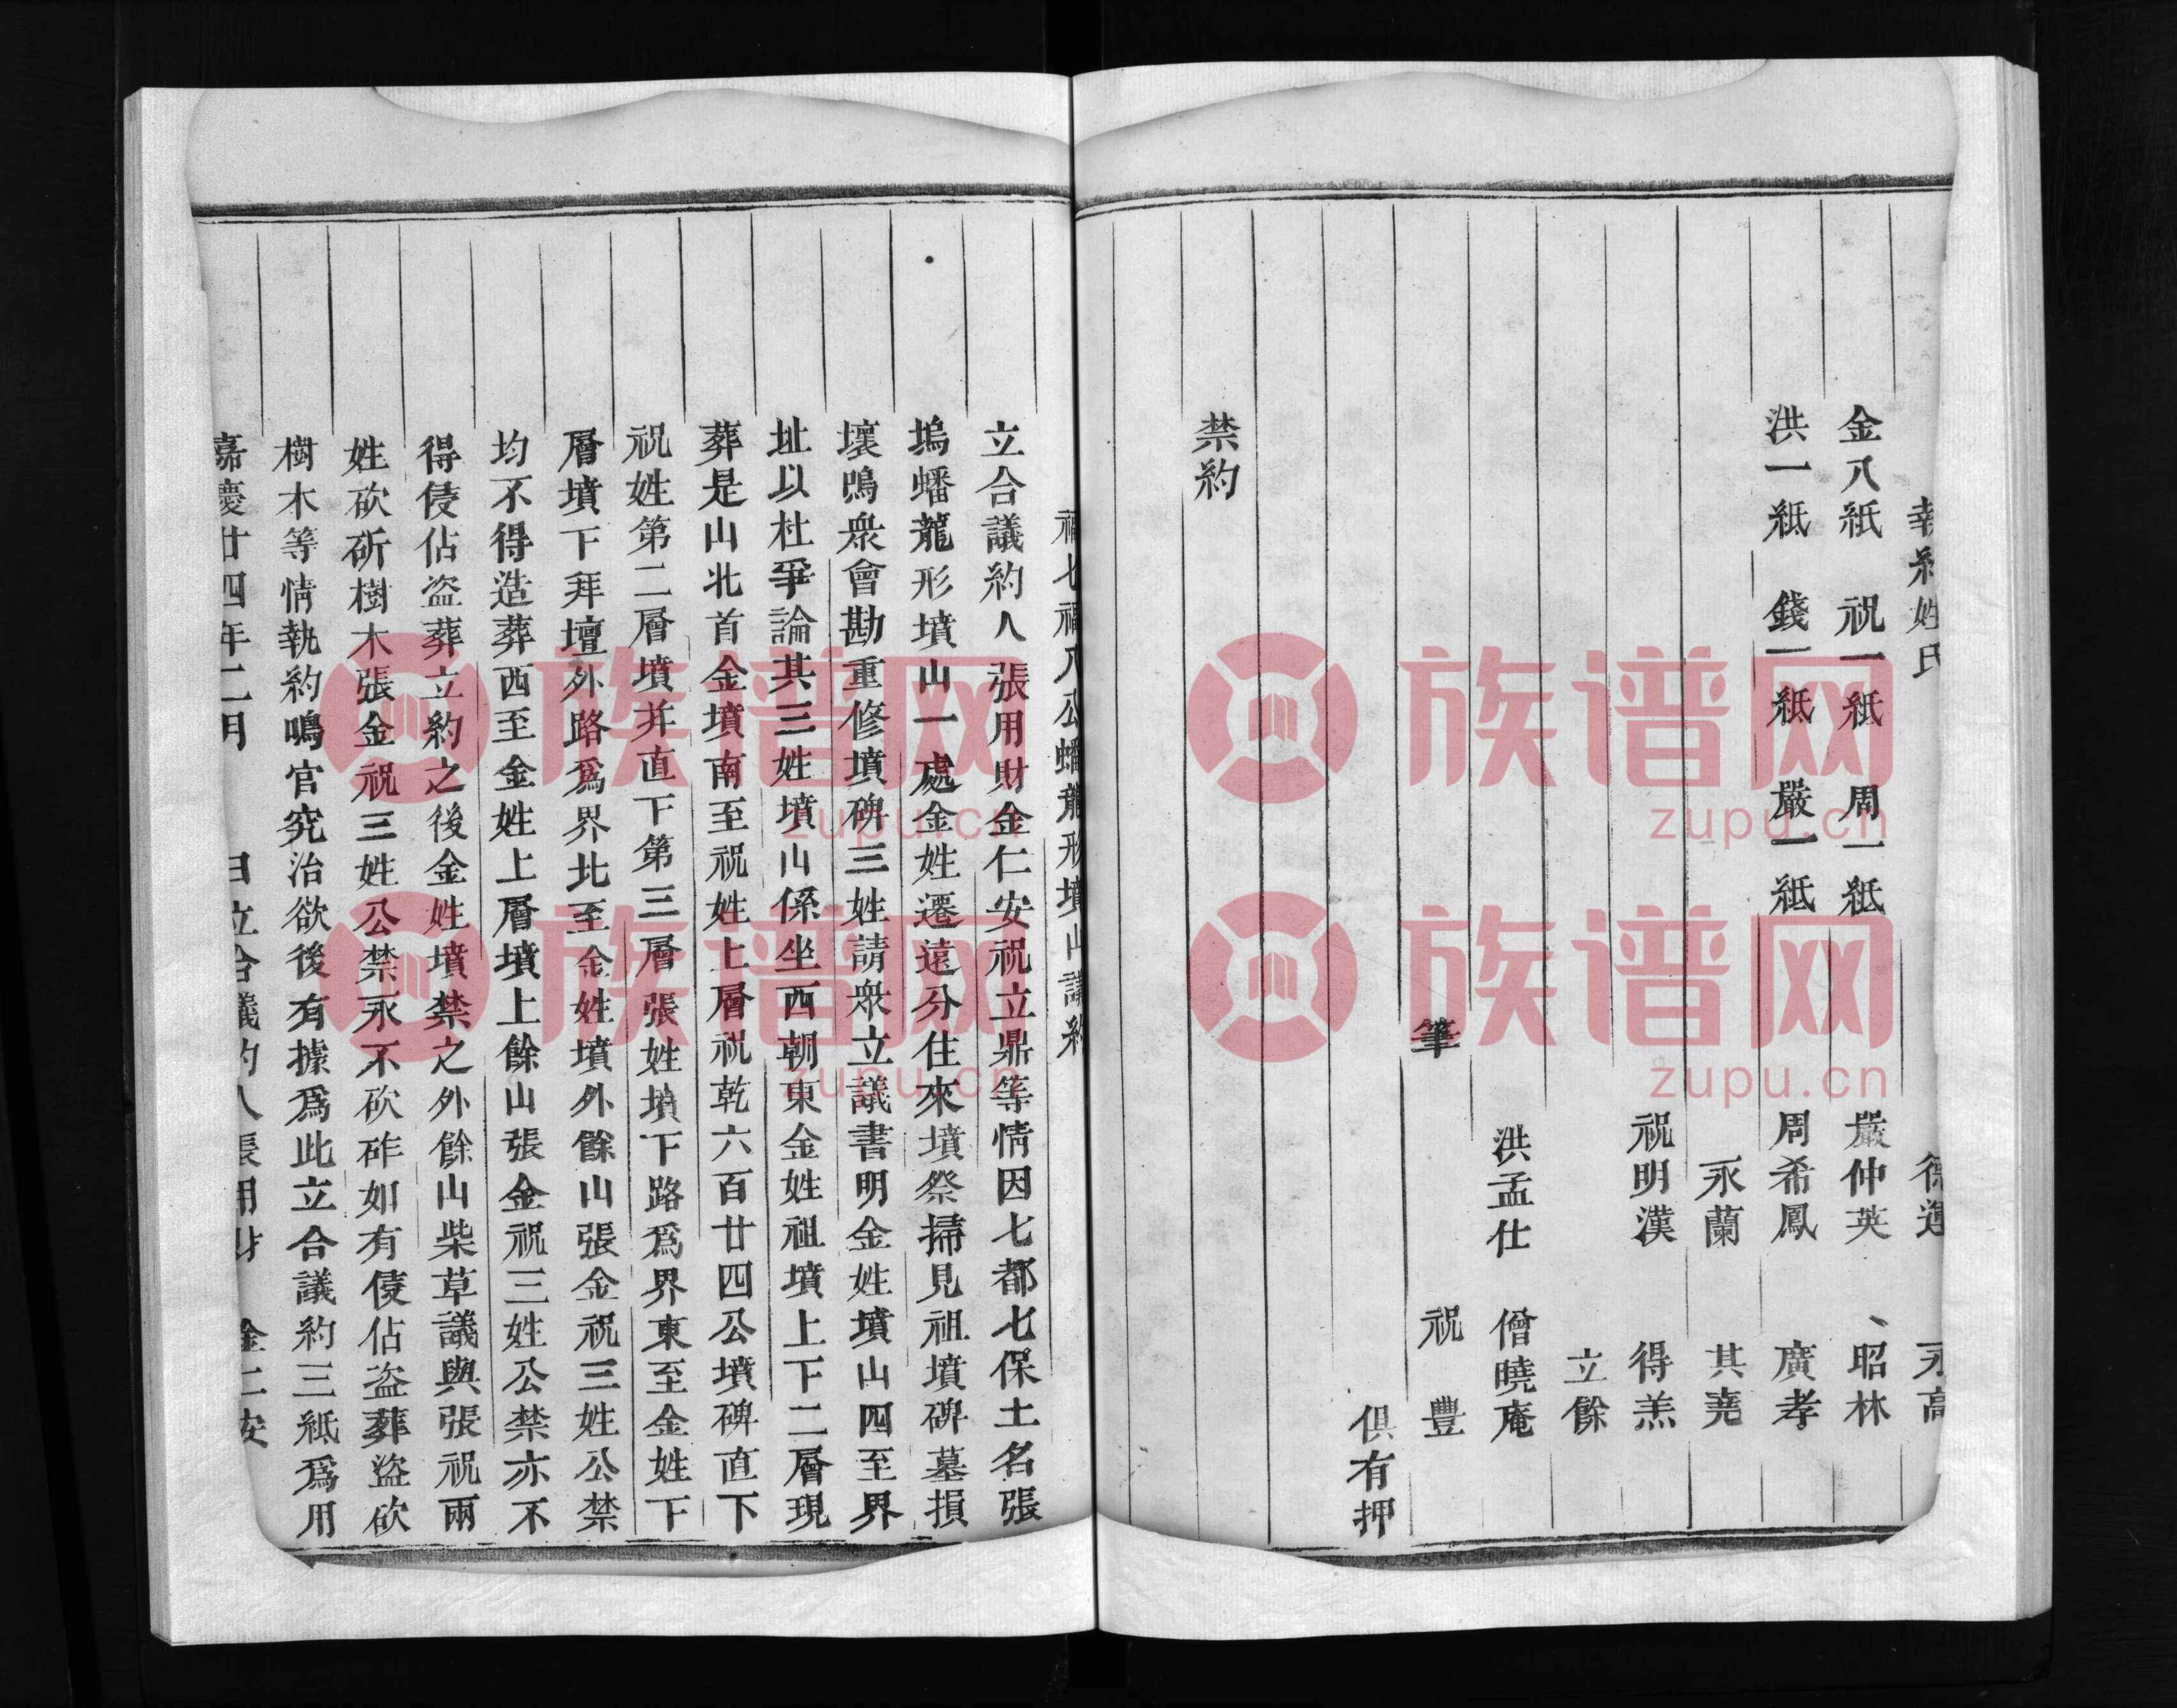 執約姓氏 徐運 永高
金八紙 祝一紙 周一紙 嚴仲英 昭林
洪一紙 錢一紙 嚴一紙 周希鳳 廣孝
永蘭 其堯
祝明漢 得羔
立餘
洪孟仕 僧曉庵
筆 祝豐
俱有押
禁約
福七福八公蟠龍形墳山議約
立合議約人張用財金仁安祝立鼎等情因七都七保土名張
塢蟠龍形墳山一處金姓遷遠分住來墳祭掃見祖墳碑墓損
壞鳴衆會勘重修墳碑三姓請衆立議書明金姓墳山四至界
址以杜爭論其三姓墳山係坐西朝東金姓祖墳上下二層現
葬是山北首金墳南至祝姓上層祝乾六百廿四公墳碑直下
祝姓第二層墳并直下第三層張姓墳下路爲界東至金姓下
層墳下拜壇外路爲界北至金姓墳外餘山張金祝三姓公禁
均不得造葬西至金姓上層墳上餘山張金祝三姓公禁亦不
得侵佔盜葬立約之後金姓墳禁之外餘山柴草議與張祝兩
姓砍斫樹木張金祝三姓公禁永不砍砟如有侵佔盜葬盜砍
樹木等情執約鳴官究治欲後有據爲此立合議約三紙爲用
嘉慶廿四年二月 日立合議約人張用財 金仁安
族谱网
zupu.cn
族谱网
zupu.cn
族谱网
zupu.cn
族谱网
zupu.cn